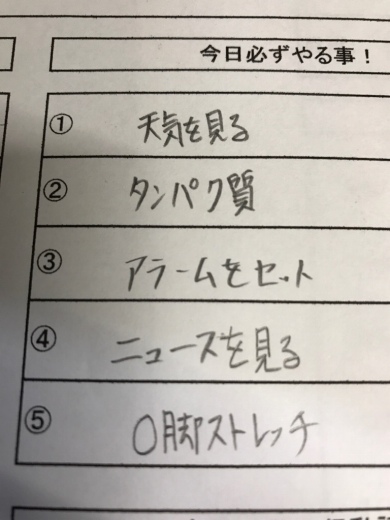 今日必ずやる事！
① 天気を見る
② タンパク質
③ アラームをセット
④ ニュースを見る
⑤ O脚ストレッチ